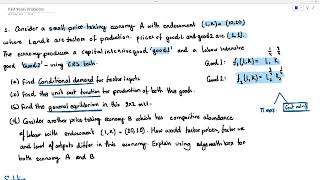 Past Years Problems
1. Consider a small price taking economy A with endowment (L,K) = (20,20)
where L and K are factors of production. prices of good 1 and good 2 are (1,1).
The economy produce a capital intensive good 'good 1' and a labour intensive
good 'good 2' using CRS tech.
Good 1: f₁(L,K) = L K
Good 2: f₂(L,K) = L K
(a) Find conditional demand for factor inputs
(b) Find the unit cost function for production of both the good.
(c) Find the general equilibrium in this 2x2 model.
π max. Cost min
(d) Consider another price taking economy B which has comparative abundance
of labour with endowment (L,K) = (20,10). How would factor prices, factor use
and level of outputs differ in this economy. Explain using edgeworth box for
both economy A and B.